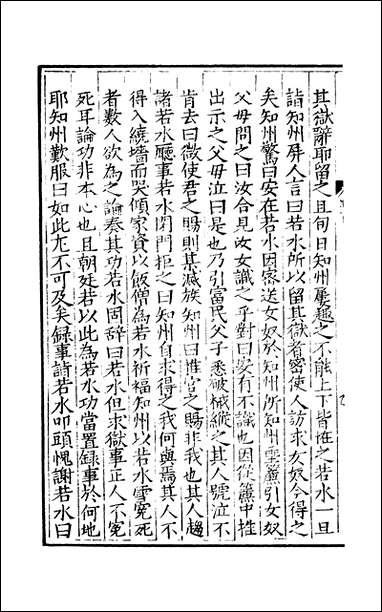 其獄辭耶留之且旬日知州屢趣之不能上下皆怪之若水一旦
詣知州屏人言曰若水所以留其獄者密使人訪求女奴今得之
矣知州驚曰安在若水因密送女奴於知州所知州垂簾引女奴
父母問之曰汝今見汝女識之乎對曰安有不識也因從簾中推
出示之父母泣曰是也乃引富民父子悉破械縱之其人號泣不
肯去曰微使君之賜則某滅族知州曰推官之賜非我也其人趨
諸若水廳事若水閉門拒之曰知州自求得之我何與焉其人不
得入繞墻而哭傾家資以飯僧為若水祈福知州以若水雪冤死
者數人欲為之論奏其功若水固辭曰若水但求獄事正人不冤
死耳論功非本心也且朝廷若以此為若水功當置録事於何地
耶知州歎服曰如此尤不可及矣録事詣若水叩頭愧謝若水曰